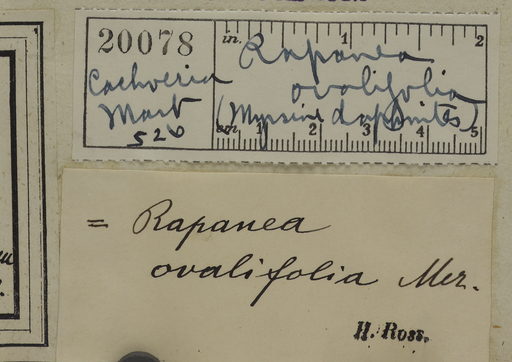 20078
Cachveria
Mart
520
in. 1 2
Rapanea
ovalifolia
(Myrsine daphnites)
cm. 1 2 3 4 5
= Rapanea
ovalifolia Mez.
H. Ross.